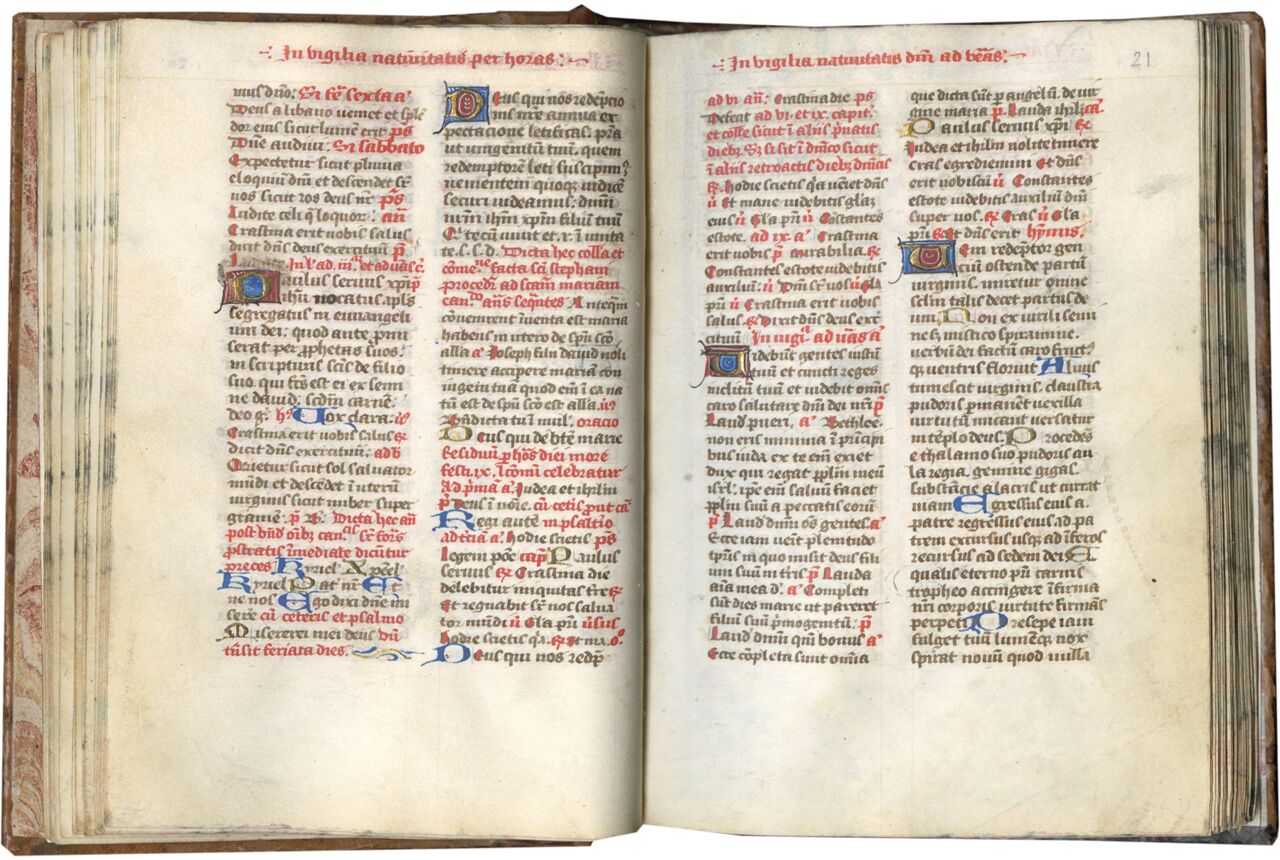 In vigilia nativitatis per horas.
nius dño. Si fe' sexta a'
Deus a libano veniet et sple
dor eius sicut lumen erit ps
Dñe audivi. Si sabbato
Expectetur sicut pluvia
eloquiū dñi et descendet sr̄
nos sicut ros deus nr̄ ps
Audite celi q̄ loquor. añ
Crastina erit vobis salus
dicit dñs deus exercituū. p̄
Paulus servus xpi
ihū vocatus apls
segregatus in euvangeli
um dei: quod ante p̄mi
serat per prophetas suos.
in scripturis scīs de filio
suo. qui fr̄s est ei ex semi
ne david. scdm carnē.
deo g. hs Vox clara. vs
Crastina erit vobis salus
dicit dñs exercituū. ad b
Orietur sicut sol salvator
mūdi et descēdet ī uterū
virginis sicut imber super
gramē. p̄ B. Dicta hec añ
post bñd
pstratis īmediate dicūtur
preces Kyriel' Xpeel'
Kyriel' Pat nr̄ Et
ne nos Ego dixi dñe mi
sere cū ceteris et psalmo
Miserere mei deus
Deus qui nos redēpcio
nis nr̄e annua ex
pectacione letificas. pr̄a
ut unigenitū tuū. quem
redemptorē leti suscipim9
venientem quoq; iudicē
securi videamus. dñm
nr̄m ihm xpm filiū tuū
Q' tecū vivit et r. ī unita
te. s. s. d. Dicta hec colla et
cōme. facta scī stephani
procedr̄ ad scām mariam
Anteqm̄
convenirent īventa est maria
habens in utero de spū scō
alla a' Joseph fili david noli
timere accipere mariā con
iugem tuā quod eni ī ea na
tū est de spū scō est alla. vs
Bñdicta tu ī mul'. oracio
Deus qui de bte marie
Residuū p̄ hōs diei more
festi. ix. l'. cōmū celebratur
Ad p̄mā a' Judea et ihrlm̄
p̄ Deus ī noīe. cū cetis put ca
Regi autē in psaltio
ad tciā a' Hodie scietis ps
Legem pōe cap' Paulus
servus R' Crastina die
delebitur iniquitas tr̄e
Et regnabit sr̄ nos salva
tor mūdi V' Gla pr̄i
Hodie scietis qa. R' Et ma
Deus qui nos redēp
In vigilia nativitatis dñi ad vēas.
21
ad vi añ: Crastina die ps
Defecit ad vi et ix. capit'.
et coll'e sicut ī aliis p̄vatis
dieb. Si si sit ī dñico sicut
ī aliis retroactis dieb dñicis
R' Hodie scietis qa veniet dñs
V' Et mane videbitis glāz
eius V' Gla pr̄i V' Cōstantes
estote. ad ix a' Crastina
erit vobis p̄ Mirabilia. R'
Constantes estote videbitis
auxiliū. V' Dñi sr̄ vos V' Gla
pr̄i V' Crastina erit vobis
salus R' Dixit dñs deus exer
cituū In vigi' ad vēas a'
Videbūt gentes iustū
tuū et cuncti reges
inclitū tuū et videbit omīs
caro salutare dñi dei nr̄i p̄
Laud pueri. a' Bethlee
non eris minima ī p̄ncipi
bus iuda ex te eni exiet
dux qui regat pplm meū
isrl'. ipe eni salvū faciet
pplm suū a peccatis eorū
p̄ Laud dñm oēs gentes. a'
Ecce iam venit plenitudo
tp̄ris in quo misit deus fili
um suū in tr̄is p̄ Lauda
aīa mea d. a' Completi
sūt dies marie ut pareret
filiū suū p̄mogenitū. p̄
Laud dñm qm̄ bonus a'
Ecce cōpleta sunt omnia
que dicta sūt p̄ angelū. de vir
gine maria p̄ Lauda ihrl'
Paulus servus xpi R'
Judea et ihrlm nolite timere
cras egrediemini Et dñs
erit vobiscū V' Constantes
estote videbitis auxiliū dñi
super vos. R' Cras V' Gla
pr̄i R' Et dñs erit hymus.
Veni redēptor gen
ciū ostende partū
virginis. miretur omne
sclm talis decet partus de
um Non ex virili semi
ne s; mistico spiramine.
verbū dei factū caro fruct'
q; ventris floruit Alvus
tumescit virginis. claustra
pudoris p̄manēt vexilla
virtutū micant versatur
in tēplo deus. Procedēs
e thalamo suo pudoris au
la regia. gemine gigas
substācie alacris ut currat
viam Egressus eius a
patre regressus eius ad pa
trem excursus usq; ad īferos
recursus ad sedem dei E
qualis eterno pr̄i carnis
tropheo accingere īfirma
nr̄i corporis virtute firmās
perpeti Presepe iam
fulget tuū lumēq; nox
spirat novū quod nulla